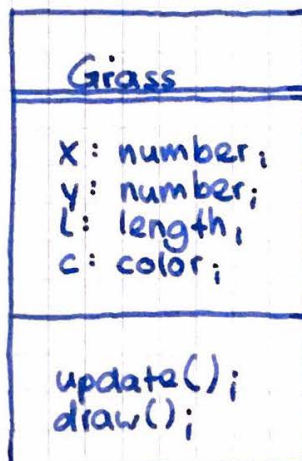 Grass
x: number;
y: number;
l: length;
c: color;
update();
draw();